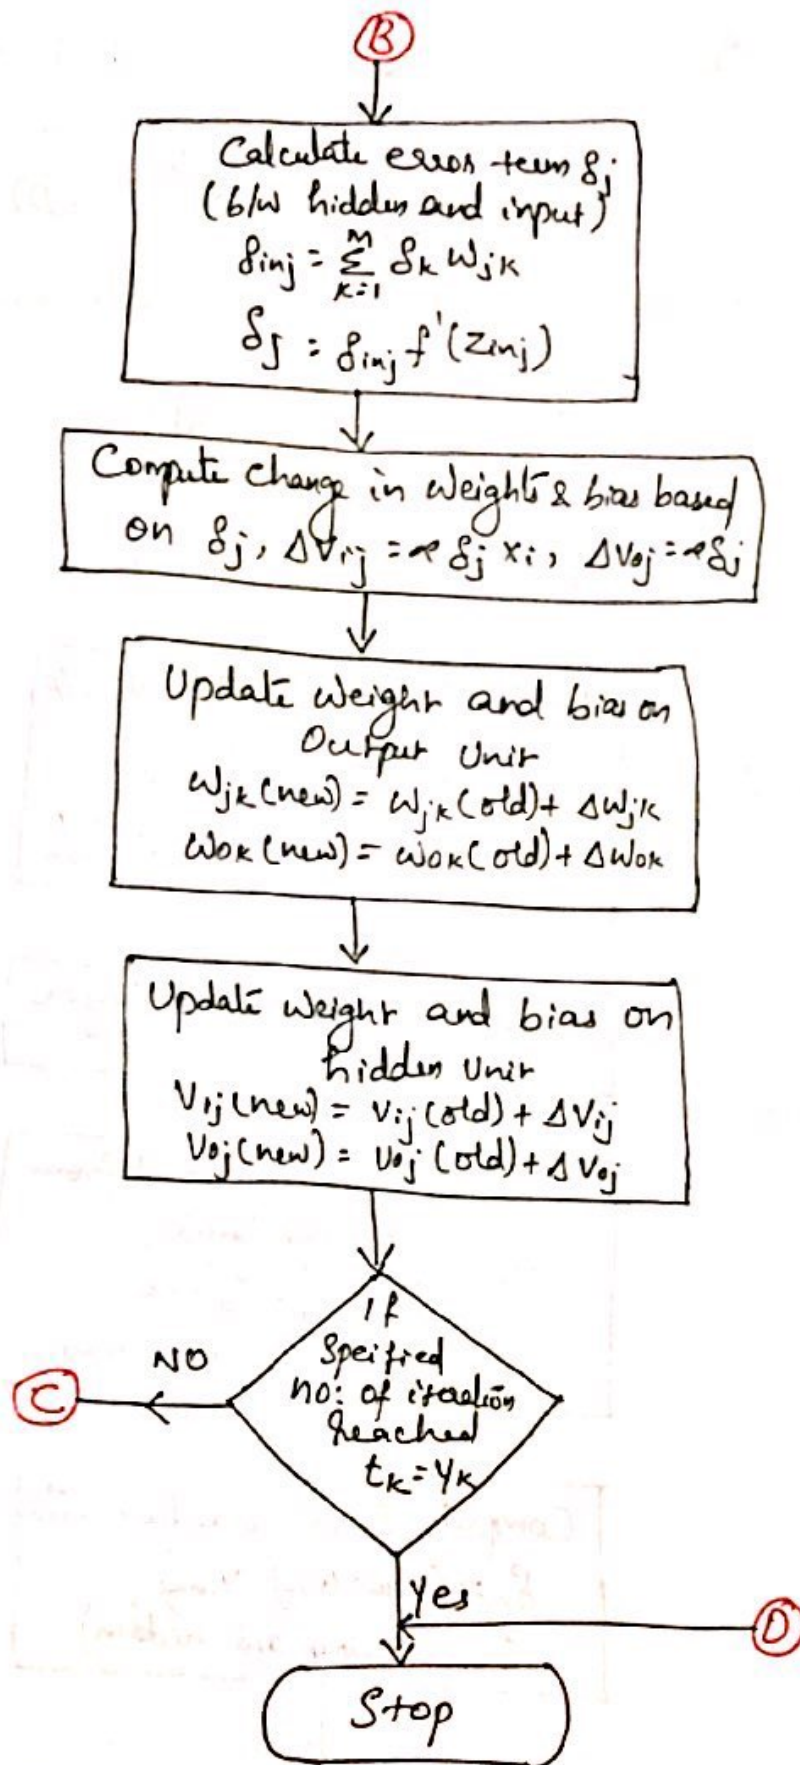 B
Calculate error term δj
(b/w hidden and input)
δinj = Σ δk wjk
M
k=1
δj = δinj f'(zinj)
Compute change in weights & bias based
on δj, ΔVij = α δj xi, ΔVoj = αδj
Update weight and bias on
Output Unit
wjk(new) = wjk(old) + Δwjk
wok(new) = wok(old) + Δwok
Update weight and bias on
hidden Unit
Vij(new) = Vij(old) + ΔVij
Voj(new) = Voj(old) + ΔVoj
If
Speified
no: of iteration
Reached
tk = yk
NO
C
Yes
D
Stop